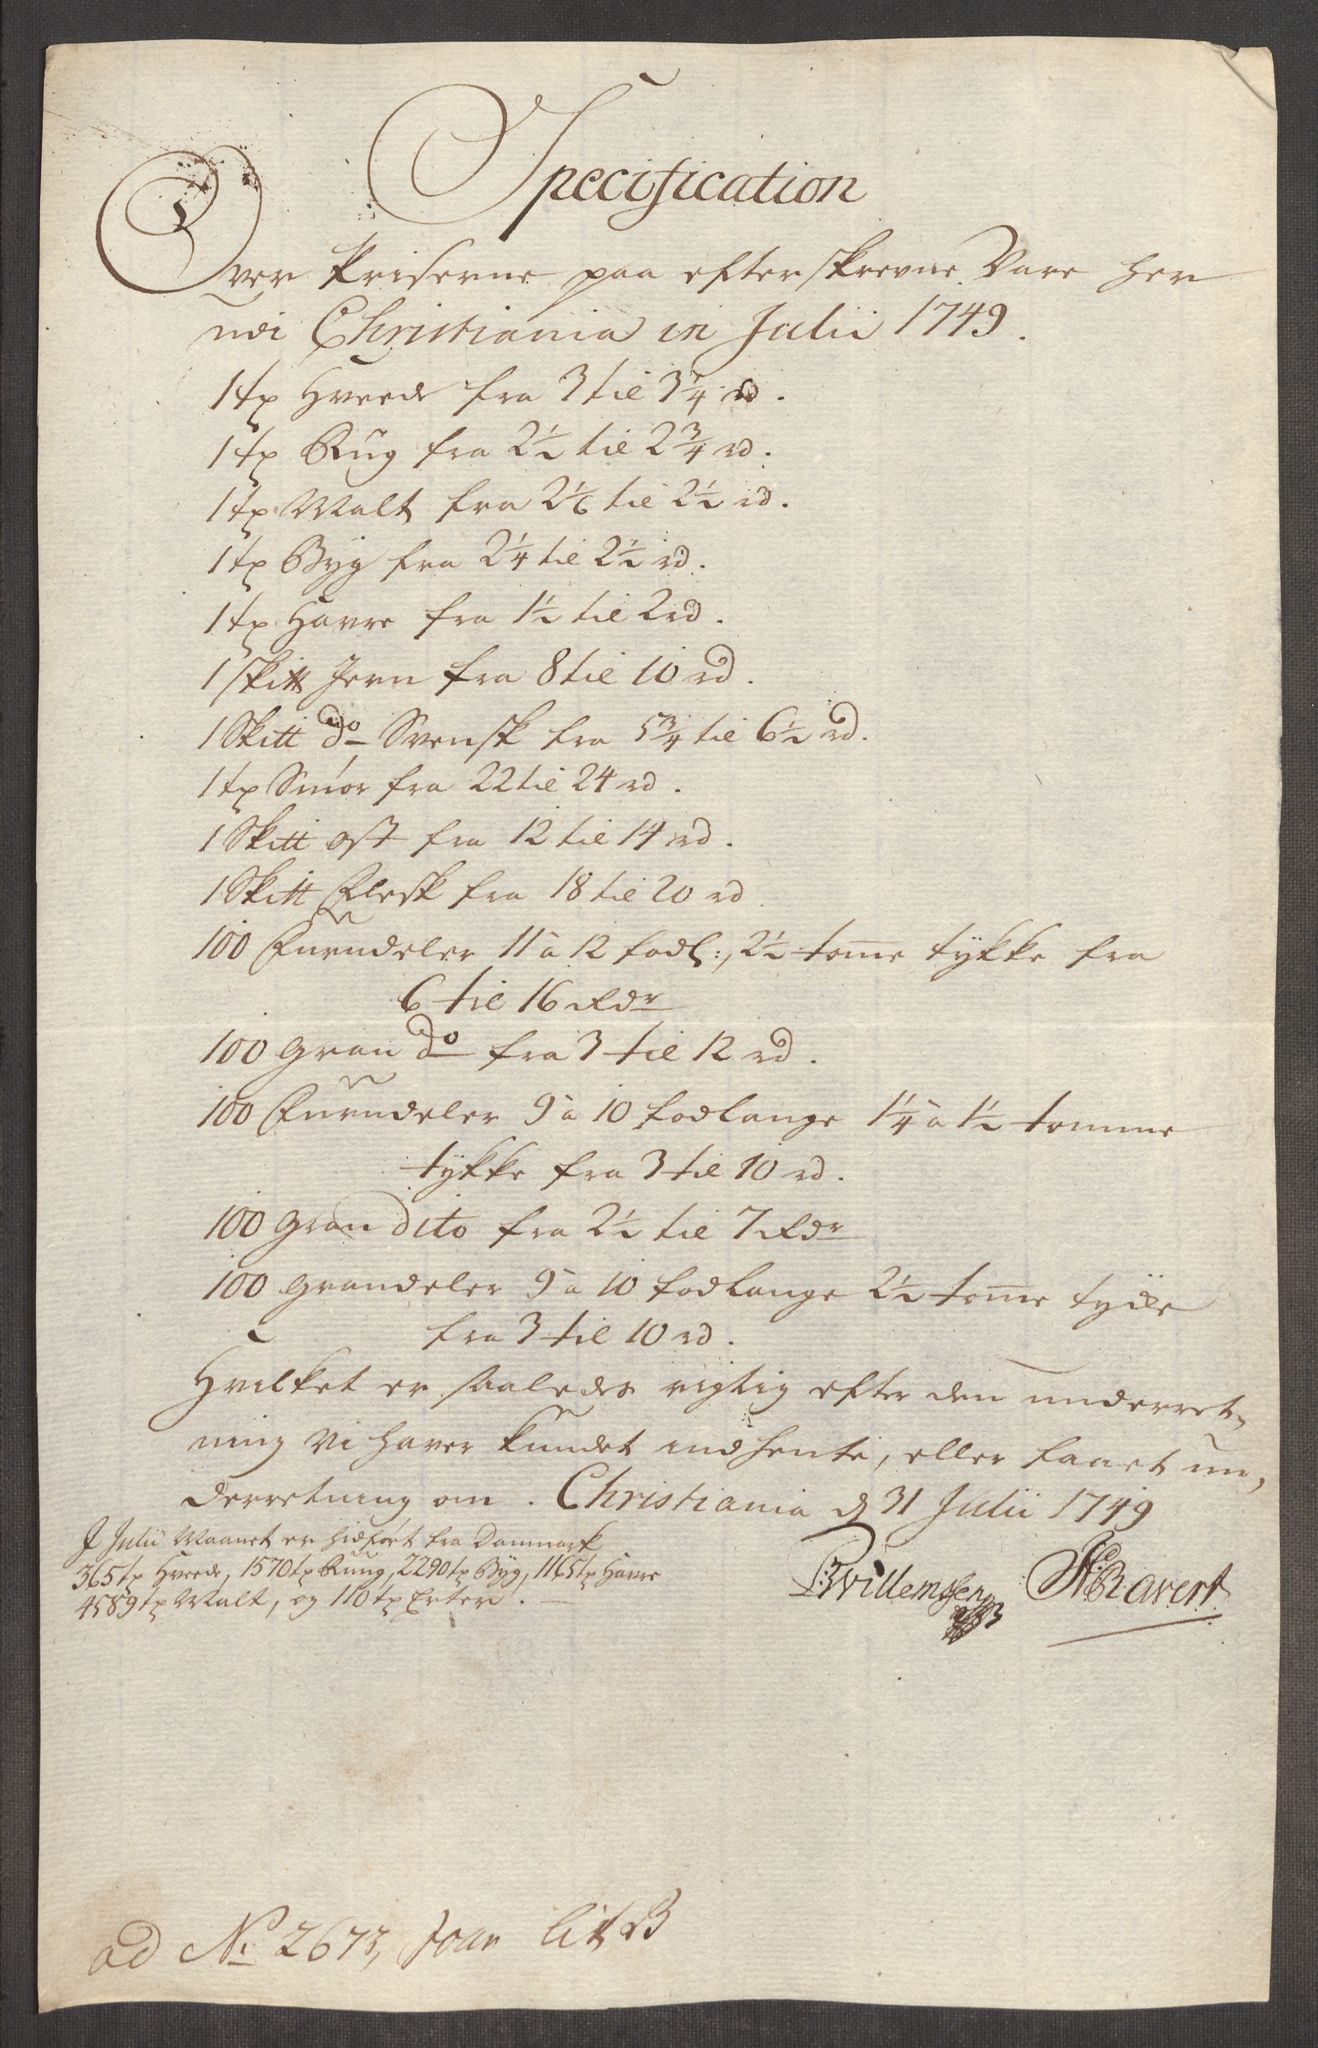 Specification
Over Priserne paa efterskrevne Vare her
udi Christiania in Julii 1749.
1 tp Hvede fra 3 til 3 1/4 rd.
1 tp Rug fra 2 1/2 til 2 3/4 rd.
1 tp Malt fra 2 1/6 til 2 1/2 rd.
1 tp Byg fra 2 1/4 til 2 1/2 rd.
1 tp Havre fra 1 1/2 til 2 rd.
1 skitt Jern fra 8 til 10 rd.
1 Skitt do Svensk fra 5 3/4 til 6 1/2 rd.
1 tp Smör fra 22 til 24 rd.
1 Skitt ost fra 12 til 14 rd.
1 Skitt Flesk fra 18 til 20 rd
100 Furudeler 11 a 12 fodl:, 2 1/2 tomme tykke fra
6 til 16 Rdr
100 gran do fra 3 til 12 rd.
100 Furudeler 9 a 10 fodlange 1 1/4 a 1 1/2 tomme
tykke fra 3 til 10 rd.
100 gran dito fra 2 1/2 til 7 Rdr
100 grandeler 9 a 10 fodlange 2 1/2 tomme
fra 3 til 10 rd.
Hvilket er saaledes rigtig efter den underret-
ning vi haver kundet indhente, eller faaet un-
derretning om. Christiania d 31 Julii 1749
J Julii Maanet er hidført fra Danmark
365 tp Hvede, 1570 tp Rug, 2290 tp Byg, 1165 tp Havre
4589 tp Malt, og 110 tp Erter.
Willemssen
Ravert
ad No 2673, litt B